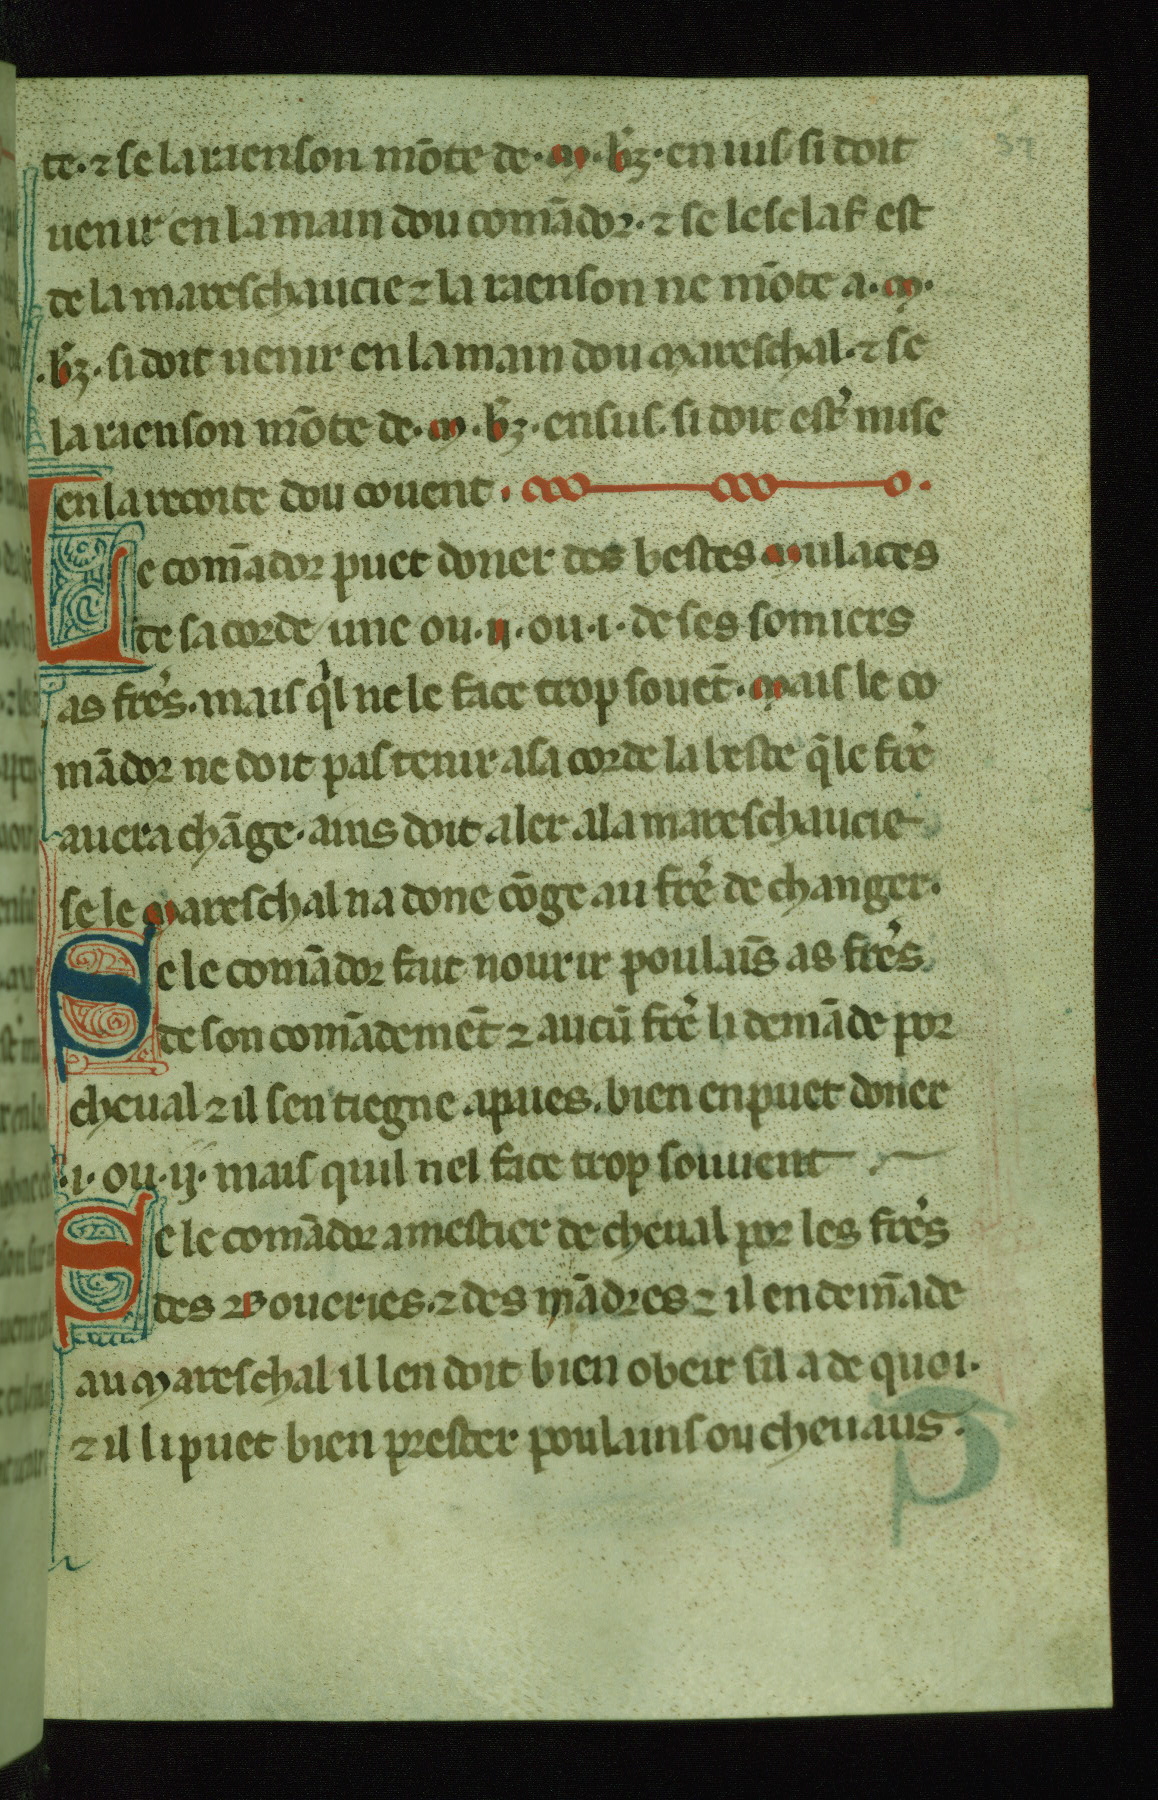 te· ⁊ se la raenson mõte de· m · b̾z· en sus si doit
uenir en la main dou comãdor· ⁊ se lesclaf est
de la mareschaucie ⁊ la raenson ne mõte a· m·
·b̾z· si doit uenir en la main dou mareschal· ⁊ se
la raenson mõte de· m · b̾z· ensus. si doit estᵉ mise
en la recoite dou couent·
Le comãdor puet doner des bestes mulaces
de sa corde une ou· ij· ou· i· de ses somiers
as freᵉs. mais qⁱl ne le face trop souet̃· mais le co
mãdor ne doit pas tenir a sa corde la beste q̃ le freᵉ
auera chãge· ains doit aler a la mareschaucie
se le mareschal na done cõge au freᵉ de changer·
Se le comãdor fait nourir poulais̃ as freᵉs
de son comãdemet̃ ⁊ aucũ freᵉ li demãde por
cheual ⁊ il sen tiegne apues. bien en puet doner
·i· ou· ij· mais quil nel face trop souuent
Se le comãdor a mestier de cheual por les freᵉs
des Boueries· ⁊ des mãdres ⁊ il en demãde
au mareschal il len doit bien obeir sil a de quoi·
⁊ il li puet bien prester poulains ou cheuaus·